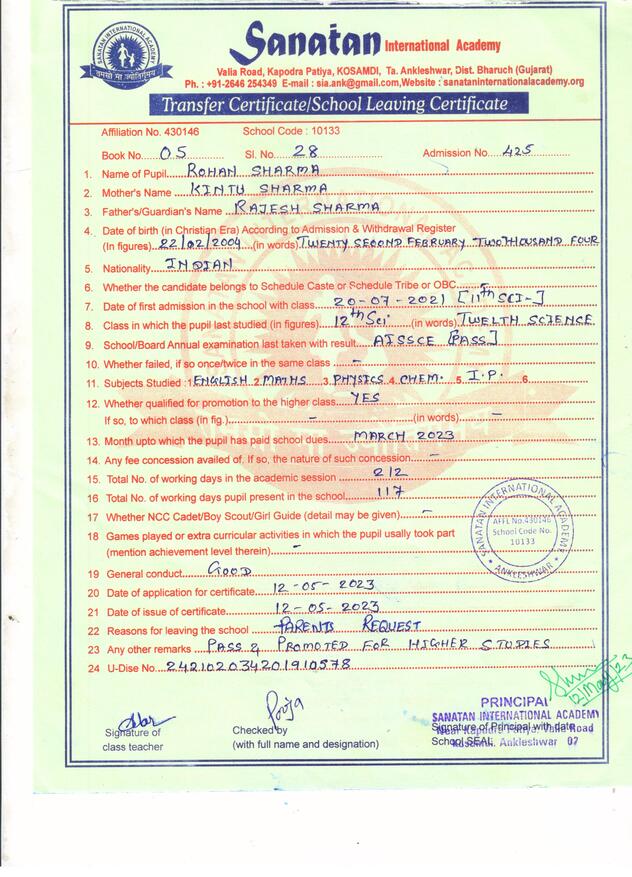 SANATAN INTERNATIONAL ACADEMY
तमसो मा ज्योतिर्गमय
Sanatan International Academy
Valia Road, Kapodra Patiya, KOSAMDI, Ta. Ankleshwar, Dist. Bharuch (Gujarat)
Ph. : +91-2646 254349 E-mail : sia.ank@gmail.com,Website : sanataninternationalacademy.org
Transfer Certificate/School Leaving Certificate
Affiliation No. 430146 School Code : 10133
Book No.... 05 Sl. No. 28 Admission No. 425
1. Name of Pupil ROHAN SHARMA
2. Mother's Name KINTU SHARMA
3. Father's/Guardian's Name RAJESH SHARMA
4. Date of birth (in Christian Era) According to Admission & Withdrawal Register
(In figures) 22/02/2004 (in words) TWENTY SECOND FEBRUARY TWO THOUSAND FOUR
5. Nationality INDIAN
6. Whether the candidate belongs to Schedule Caste or Schedule Tribe or OBC -
7. Date of first admission in the school with class 20-07-2021 [11th SCI-]
8. Class in which the pupil last studied (in figures) 12th Sci (in words) TWELTH SCIENCE
9. School/Board Annual examination last taken with result AISSCE [PASS]
10. Whether failed, if so once/twice in the same class -
11. Subjects Studied : 1 ENGLISH 2 MATHS 3. PHYSICS 4. CHEM. 5. I.P. 6.
12. Whether qualified for promotion to the higher class YES
If so, to which class (in fig.) - (in words) -
13. Month upto which the pupil has paid school dues MARCH 2023
14. Any fee concession availed of. If so, the nature of such concession -
15. Total No. of working days in the academic session 212
16 Total No. of working days pupil present in the school 117
17 Whether NCC Cadet/Boy Scout/Girl Guide (detail may be given) -
18 Games played or extra curricular activities in which the pupil usally took part
(mention achievement level therein) -
19 General conduct GOOD
20 Date of application for certificate 12-05-2023
21 Date of issue of certificate 12-05-2023
22 Reasons for leaving the school PARENTS REQUEST
23 Any other remarks PASS & PROMOTED FOR HIGHER STUDIES
24 U-Dise No. 242102034201910578
SANATAN INTERNATIONAL ACADEMY
AFFL No.430146
School Code No.
10133
ANKLESHWAR
12/May/23
Pooja
PRINCIPAL
SANATAN INTERNATIONAL ACADEMY
Signature of class teacher
Checked by
(with full name and designation)
Signature of Principal with date
School SEAL
Near Kapodra Patiya, Valia Road
Ankleshwar 02